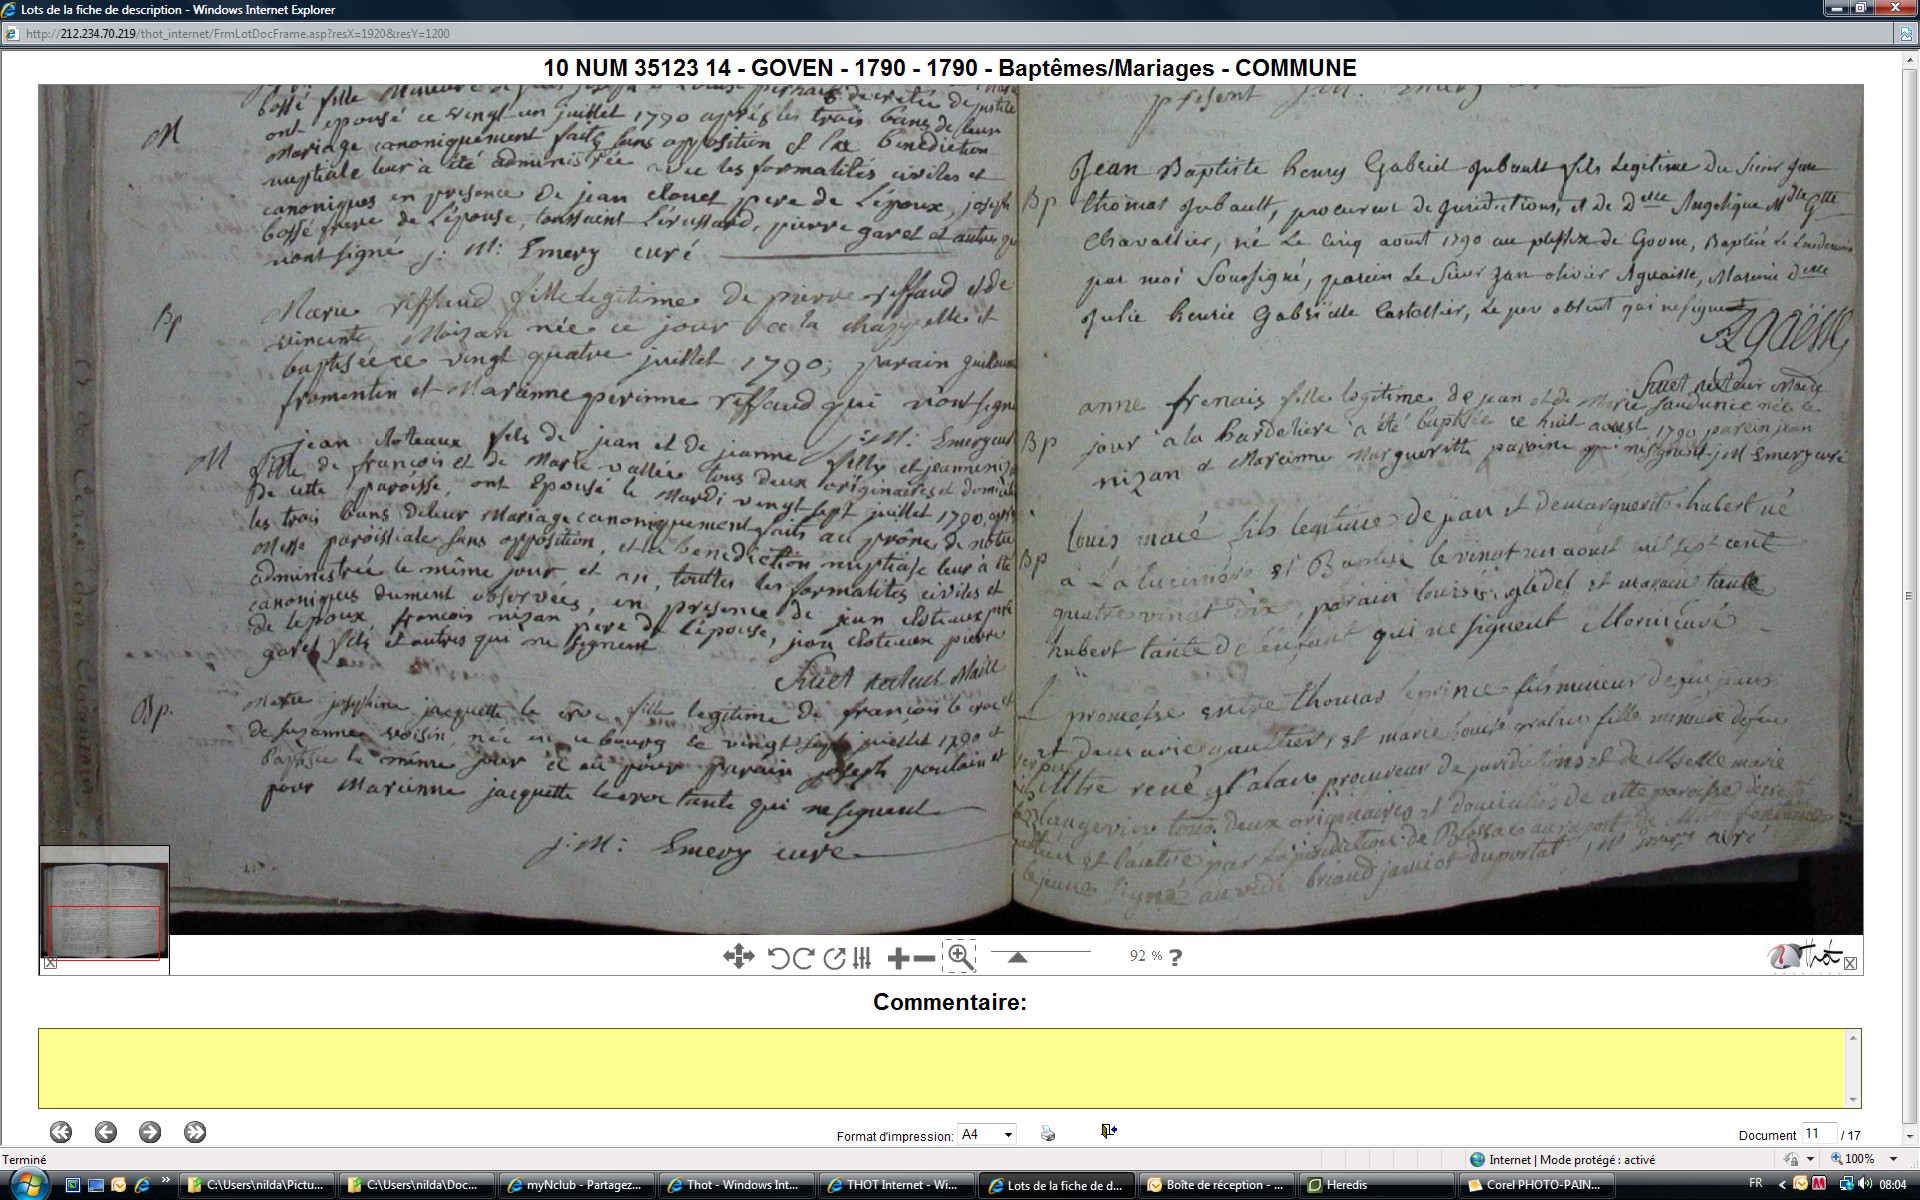 Lots de la fiche de description - Windows Internet Explorer
http://212.234.70.219/thot_internet/FrmLotDocFrame.asp?resX=1920&resY=1200
10 NUM 35123 14 - GOVEN - 1790 - 1790 - Baptêmes/Mariages - COMMUNE
bossé fille
M
ont epousé ce vingt un juillet 1790 après les trois bans de leur
Mariage canoniquement faits sans opposition et la benediction
nuptiale leur a été administrée les formalités civiles et
canoniques en presence de jean clouet pere de L'époux, joseph
bossé frere de L'épouse, pierre garel et autres qui
n'ont signé j: M: Emery curé
Bp
Marie riffaud fille legitime de pierre riffaud et de
vincente Moizan née ce jour a la chappelle et
baptisée ce vingt quatre juillet 1790; parain guillaume
fromentin et Marianne perinne riffaud qui n'ont signé
j: M: Emery curé
M
jean cloteaux fils de jean et de jeanne filly et jeanne nizan
fille de françois et de Marie vallée tous deux originaires et domiciliés
de cette paroisse, ont Epousé le Mardi vingt sept juillet 1790, après
les trois bans de leur Mariage canoniquement faits au prône de notre
Messe paroissiale sans opposition, et la benediction nuptiale leur a été
administrée le même jour et an, touttes les formalités civiles et
canoniques dument observées, en presence de jean cloteaux pere
de l'epoux, françois nizan pere de L'épouse, jean cloteaux pierre
garel fils et autres qui ne signent
recteur Maire
Bp.
Marie josephine jacquette le croc fille legitime de françois le croc et
de suzanne voisin, née en ce bourg le vingt sept juillet 1790 et
baptisée le même jour a eu pour parain joseph poulain et
pour Marianne jacquette le croc tante qui ne signent
j: M: Emery curé
présent J: M: Emery
Bp
Jean Baptiste henry Gabriel Jubault fils Legitime Du Sieur
thomas Jubault, procureur de Juridictions, et de Delle Angelique
Chavallier, né Le cinq aoust 1790 au plessix de Goven, Baptisé Le Lendemain
par moi Soussigné, parein Le Sieur Jan olivier Aguaisse, Mareine Delle
Julie henrie Gabrielle Castellier, Le pere absent qui ne signe
recteur Maire
Bp
anne frenais fille legitime de jean et de Marie née le
jour a la hardeliere a été baptisée ce huit aoust 1790 parein jean
nizan et Mareinne Margueritte qui ne signent J M Emery curé
Bp
Louis macé fils legitime de jean et de marguerite hubert né
à La lucinière et Baptisé le vingt un aoust mil sept cent
quatre vingt dix, parain louis et maraine tante
hubert tante de l'enfant qui ne signent
promesse entre thomas leprince fils mineur de feu jean
et de marie gaultier, et marie louise fille mineure de feu
Mtre rené procureur de juridictions et de Mselle marie
langevin tous deux originaires et domiciliés de cette paroisse
et l'autre par la juridiction de Blossac au raport de
signé
92 %
Thot
Commentaire:
Format d'impression: A4
Document 11 / 17
Terminé
Internet | Mode protégé : activé
100%
C:\Users\nilda\Pictu...
C:\Users\nilda\Doc...
myNclub - Partagez...
Thot - Windows Int...
THOT Internet - Wi...
Lots de la fiche de d...
Boîte de réception - ...
Heredis
Corel PHOTO-PAIN...
FR
08:04